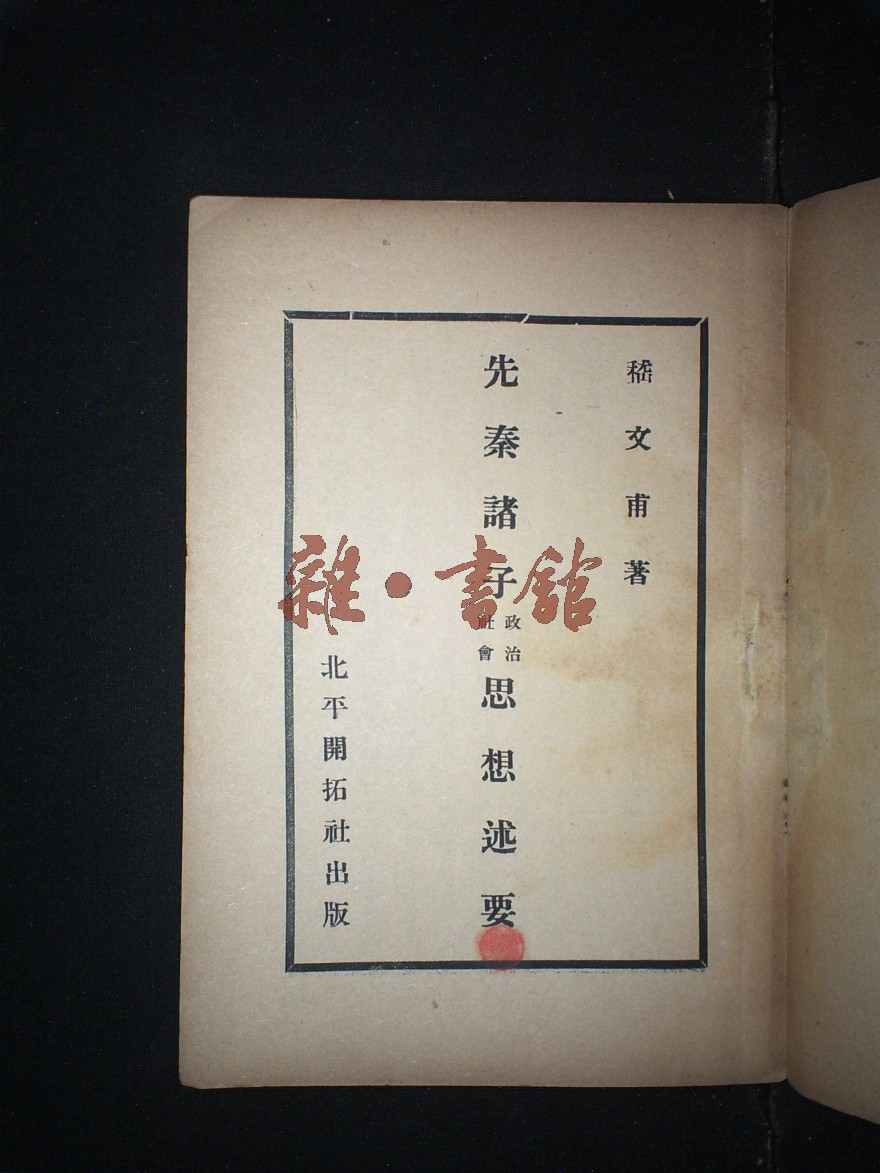 嵇文甫著
先秦諸子政治社會思想述要
北平開拓社出版
雜·書館